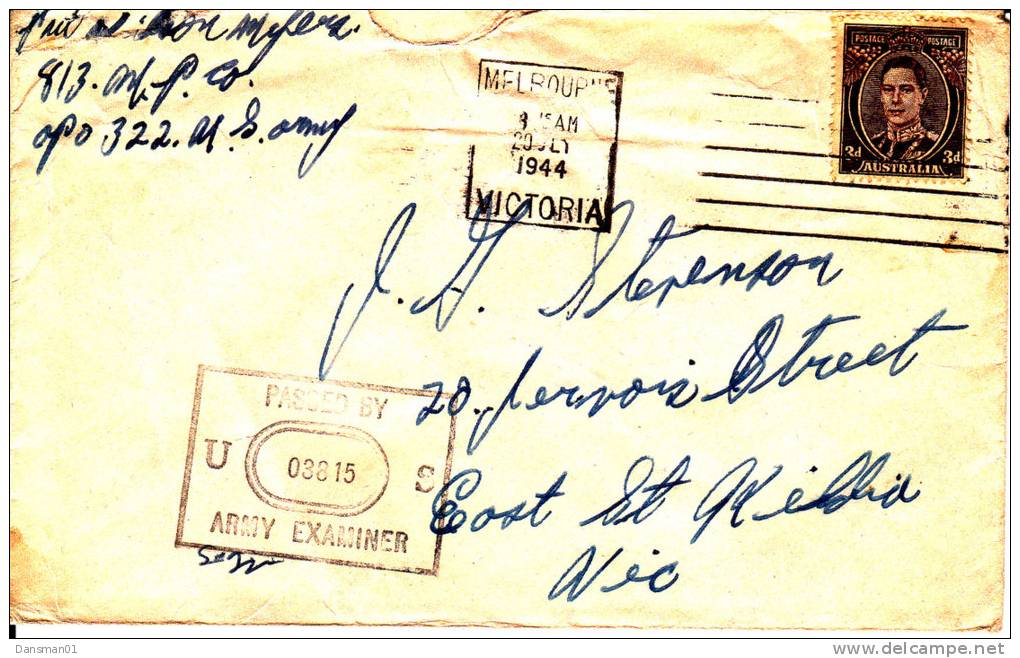 Myers.
813. M. P. Co.
APO 322. U. S. Army
MELBOURNE
15AM
20 JLY
1944
VICTORIA
POSTAGE POSTAGE
3d 3d
AUSTRALIA
J. H. Stevenson
20. Jervois Street
East St Kilda
Vic
PASSED BY
U 03815 S
ARMY EXAMINER
Dansman01
delcampe.net